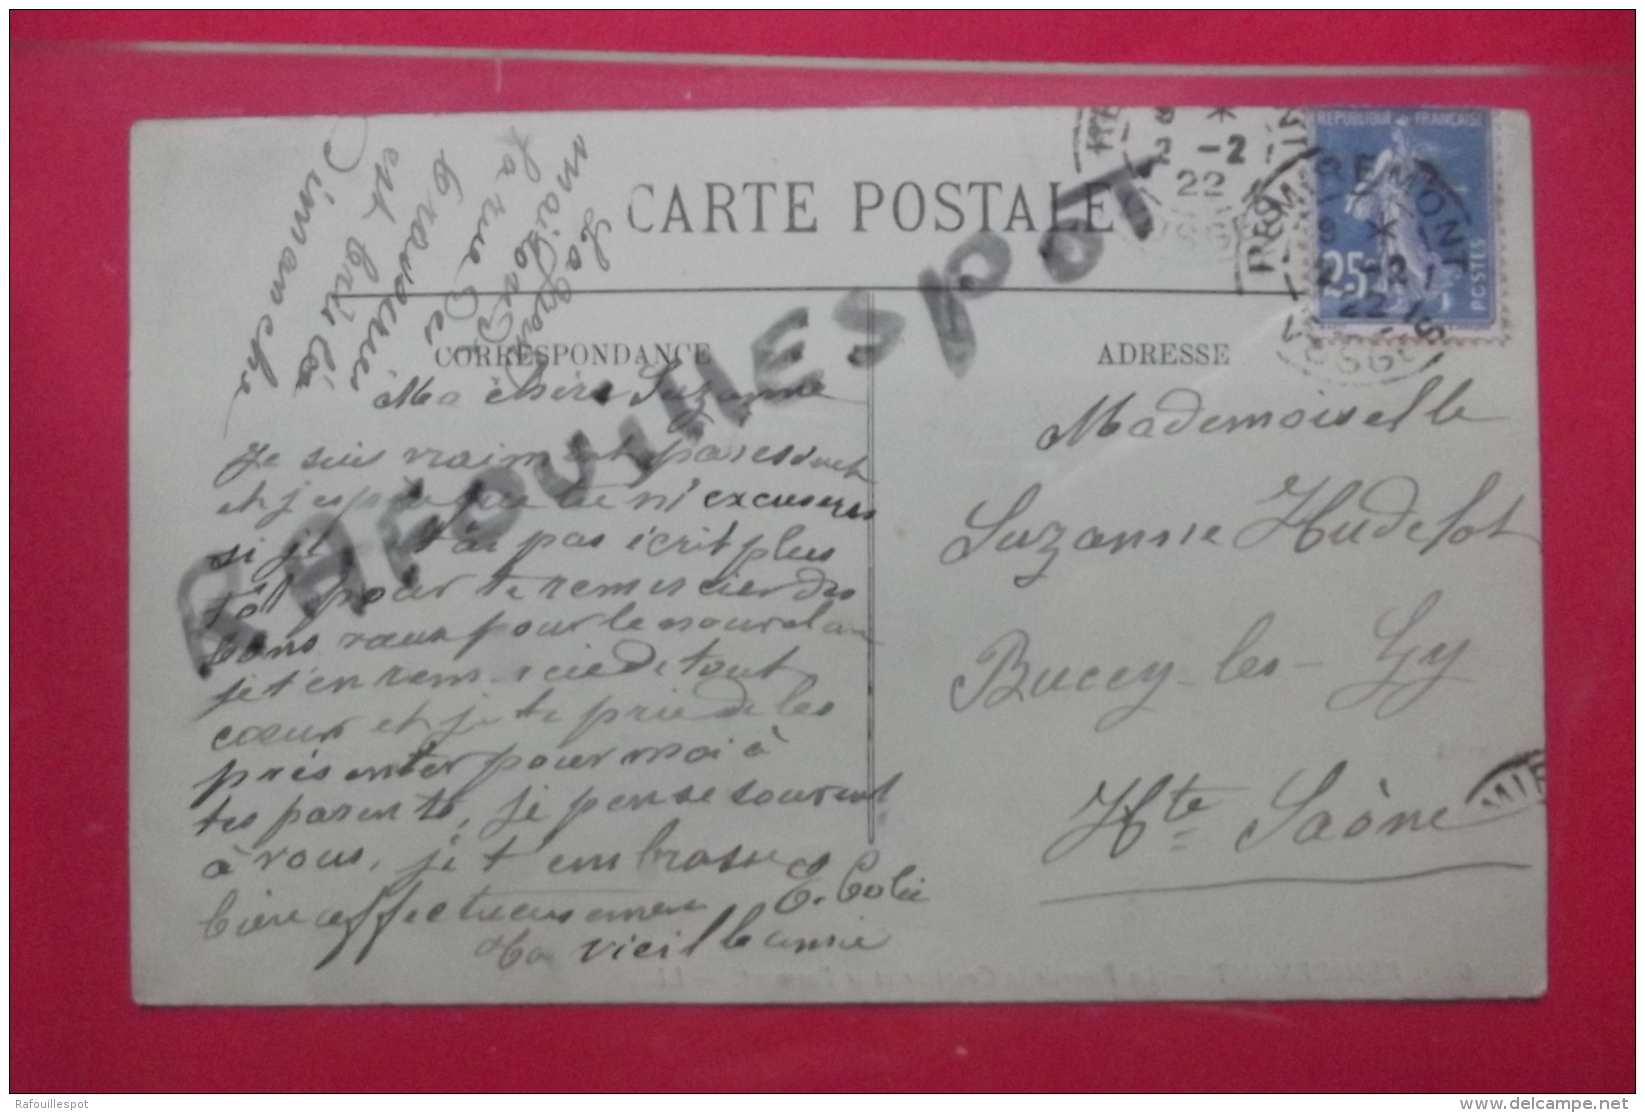 CARTE POSTALE
CORRESPONDANCE
ADRESSE
REPUBLIQUE FRANÇAISE
25c
POSTES
REMIREMONT
-2
22
VOSGES
-2
22
RAFOUILLESPOT
La grosse
maison D
la rue Des
travailleurs
est brûlée
Dimanche
Ma chère Suzanne
Je suis vraiment paresseuse
et j'espère que tu m'excuseras
si je t'ai pas écrit plus
tôt pour te remercier des
bons vœux pour le nouvel an
je t'en remercie de tout
cœur et je te prie de les
présenter pour moi à
tes parents, je pense souvent
à vous, je t'embrasse
bien affectueusement
E. Colin
Ta vieille amie
Mademoiselle
Suzanne Hudelot
Bucey-les-Gy
Hte Saône
Rafouillespot
www.delcampe.net